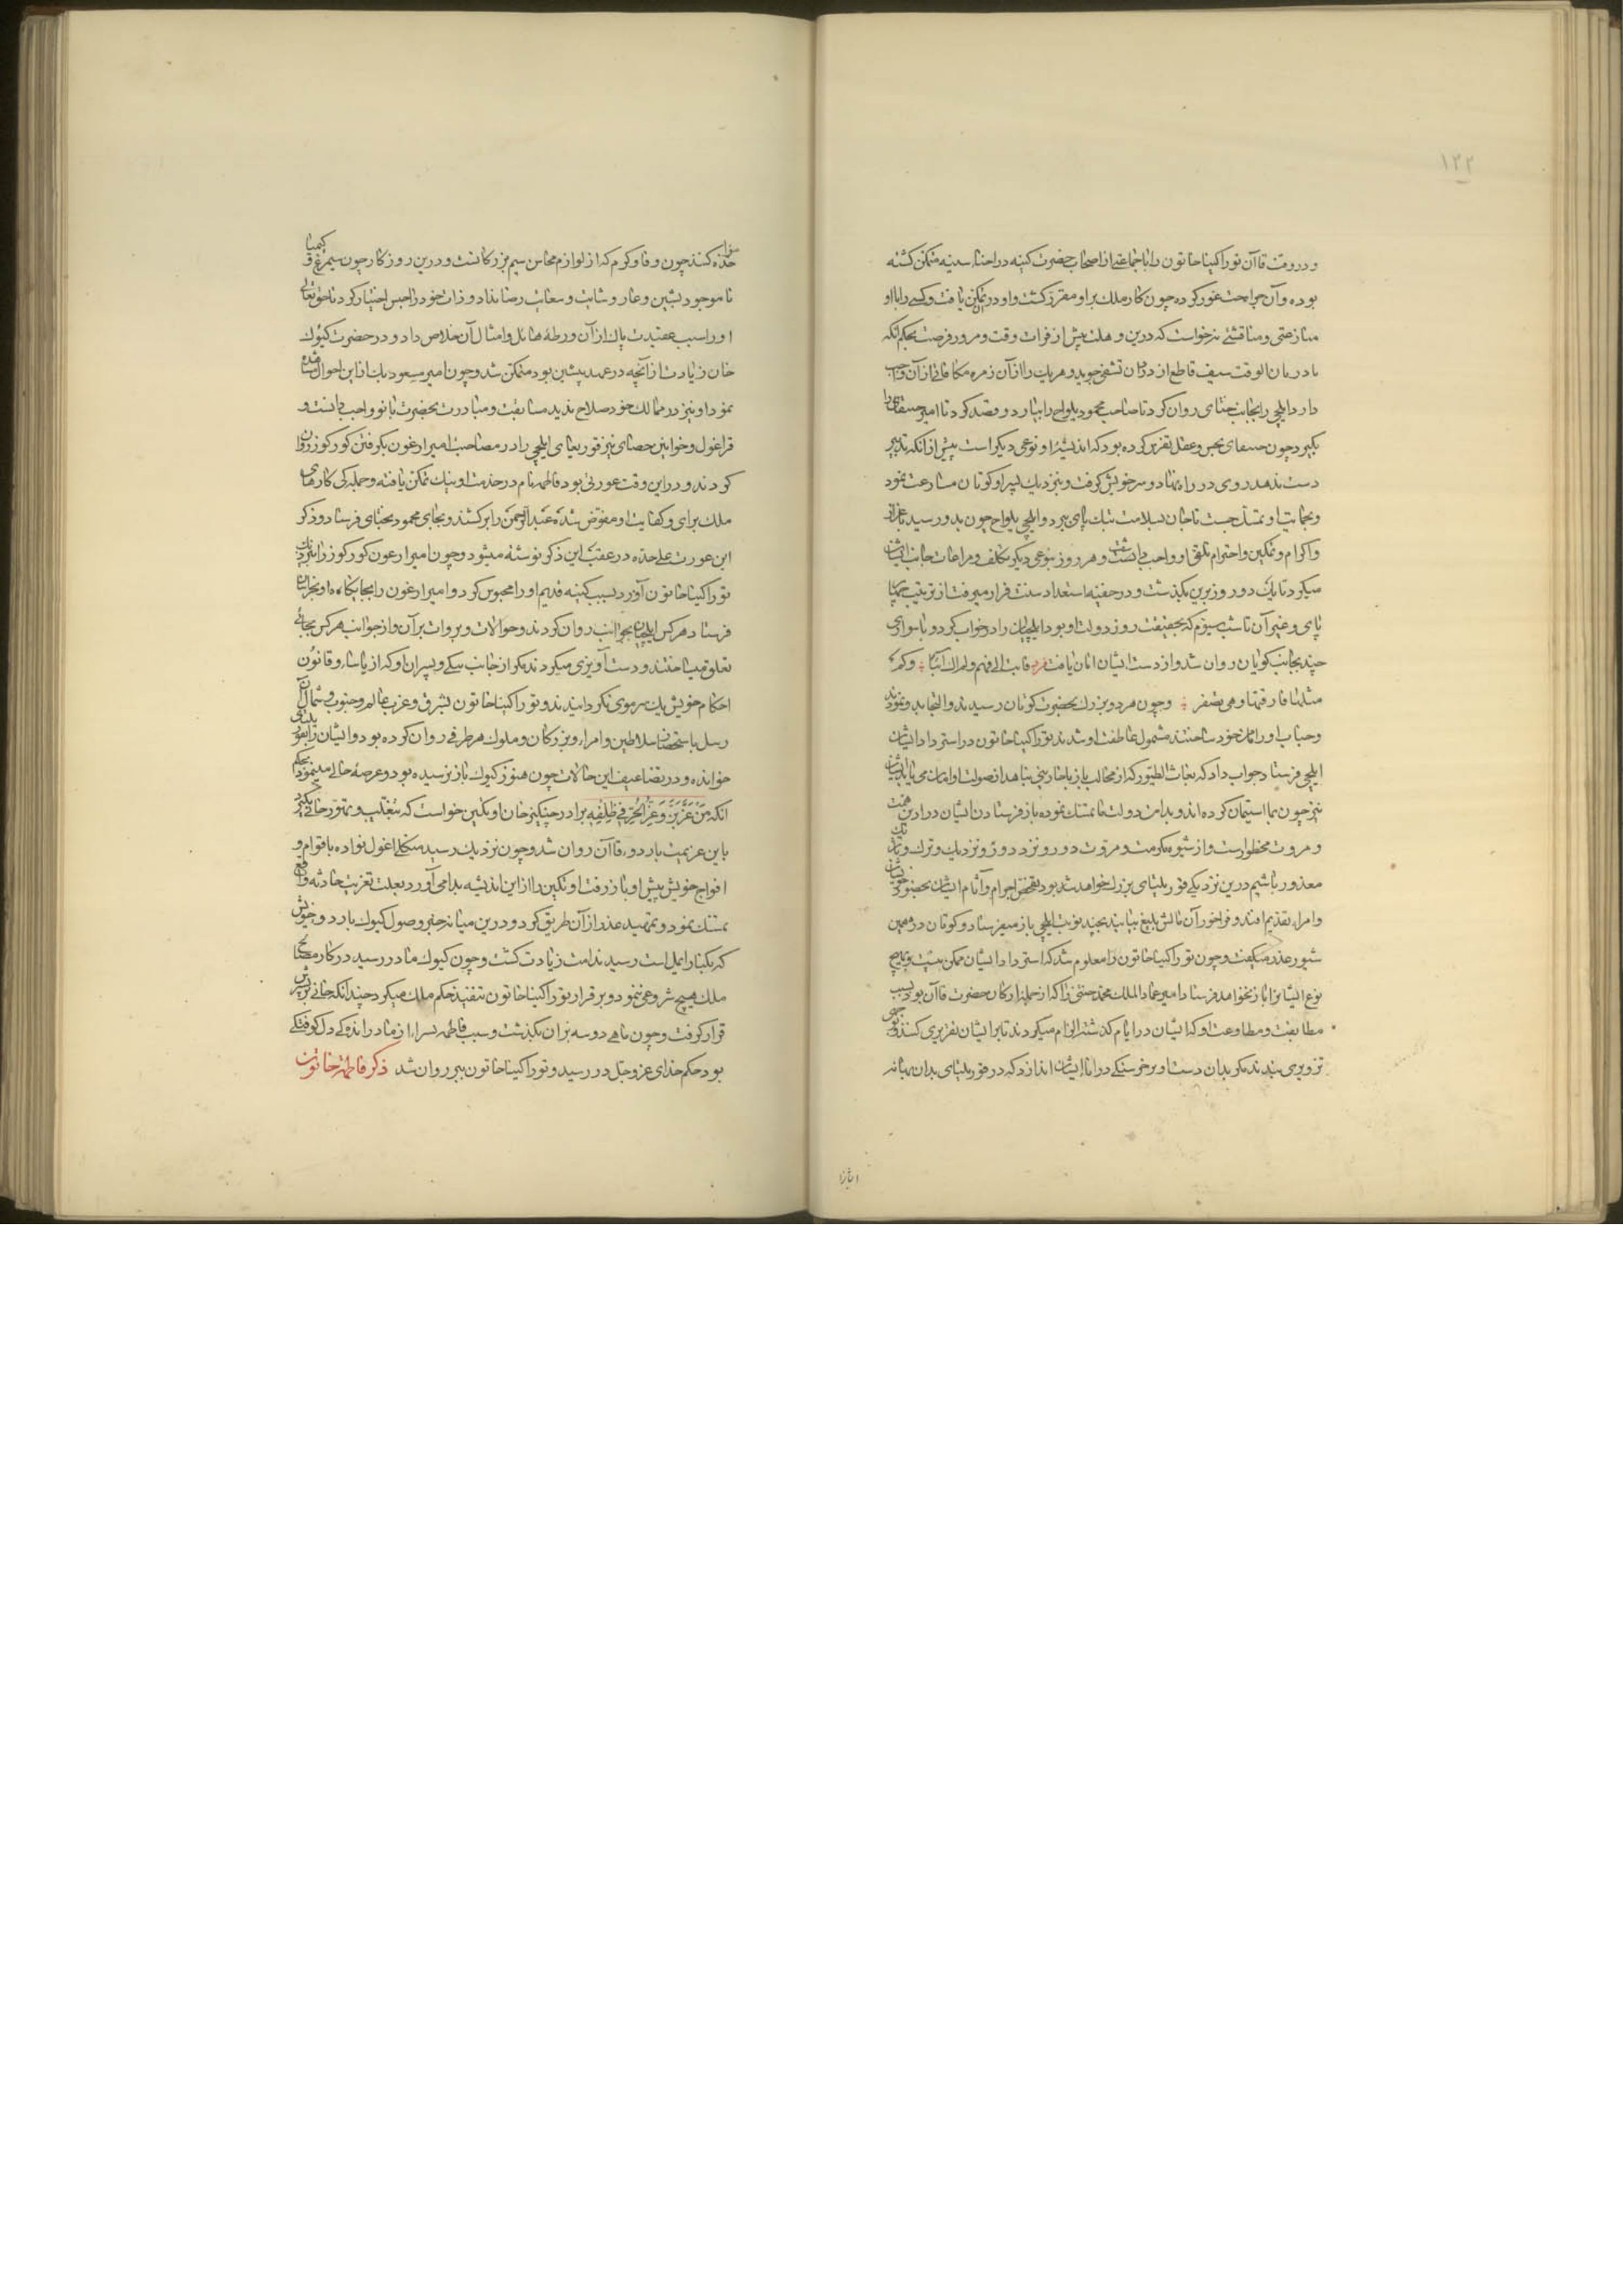 ۱۲۲
و در وقت قاآن توراکینا خاتون را با جماعتی از اصحاب حضرت کینه در احناء سینه متمکن گشته
بوده و آن جراحت غور کرده چون کار ملک بر او مقرر گشت و او در تمکن یافت و کسی را با او
منازعتی و مناقشتی نه خواست که درین وهلت پیش از فوات وقت و مرور فرصت بحکم آنکه
بادر فان الوقت سیف قاطع از دران تشفی جوید و هر یک را از آن زمره مکافاتی از آن واجب
دارد ایلچی را بجانب ختای روان کرد تا صاحب محمود یلواج را بیارد و قصد کرد تا امیر جینقای را
بگیرد چون جینقای بحس و عقل تفرس کرده بود که اندیشهٔ او نوعی دیگر است پیش از آنکه تدبیر
دست بدهد روی در راه نهاد و سر خویش گرفت و بنزدیک پسر او کوتان مسارعت نمود
و بحمایت او تمسک جست تا جان بسلامت بتک پای ببرد و ایلچی یلواج چون بدو رسید باعزاز
و اکرام و تمکین و احترام تلقی او واجب دانست و هر روز بنوعی دیگر تکلف و مراعات جانب ایشان
میکرد تا یک دو روز برین بگذشت و در خفیه استعداد سنت فرار میرفت از ترتیب چهارپا
پای و غیر آن تا شب سیوم که بحقیقت روز دولت او بود ایلچیان را در خواب کرد و با سواری
چند بجانب کوتان روان شد و از دست ایشان امان یافت فرد فابت الی فهم ولم اک آئبا وکم
مثلها فارقتها وهی تصفر وچون هر دو بزرگ بحضرت کوتان رسیدند و التجا بدو نمودند
و جناب او را مامن خود ساختند مشمول عاطفت او شدند توراکینا خاتون در استرداد ایشان
ایلچی فرستاد جواب داد که بغاث الطیور که از مخالب باز بخاربنی پناهد از صولت او امان می یابد ایشان
نیز چون بما استیمان کرده اند و بدامن دولت ما تمسک نموده باز فرستادن ایشان در آیین همت
و مروت محظورست و از شیوه مکرمت و مروت دور و نزد دور و نزدیک و ترک و تازیک
معذور نباشیم درین نزدیکی قوریلتای بزرگ خواهد شد بود تفحص اجرام و آثام ایشان بحضور خویشان
و امراء تقدیم افتد و فراخور آن مالش بلیغ بیابند بچند نوبت ایلچی باز میفرستاد و کوتان در همین
شیوه عذر میگفت و چون توراکینا خاتون را معلوم شد که استرداد ایشان ممکن نیست و بهیچ
نوع ایشانرا باز نخواهد فرستاد امیر عماد الملک محمد ختنی را که از جمله ارکان حضرت قاآن بود بسبب
مطابقت و مطاوعت او که ایشان در ایام گذشته الزام میکردند تا بر ایشان تقریری کنند و جهت
تزویری بندند مگر بدان دست آویز خرسنگی در راه ایشان اندازد که در قوریلتای بدان بهانه
ایشانرا
مواخذه کنند چون وفا و کرم که از لوازم محاسن سیم بزرگانست و درین روزگار چون سیمرغ و کیمیا
نا موجود بشین و عار وشایت و سعایت رضا نداد و ذات خود را حبس اختیار کرد تا حق تعالی
او را بسبب عقیدت پاک از آن ورطهٔ هائل و امثال آن خلاص داد و در حضرت کیوک
خان زیادت از آنچه در عهد پیشین بود متمکن شد و چون امیر مسعود بک از این احوال مشاهده
نمود او نیز در ممالک خود صلاح ندید مسابقت و مبادرت بحضرت باتو واجب دانست و
قرا اغول و خواتین جغتای نیز قوربغای ایلچی را در مصاحبت امیر ارغون بگرفتن کورکوز روان
کردند و در این وقت عورتی بود فاطمه نام در خدمت او نیک تمکن یافته و جملگی کارهای
ملک برای و کفایت او مفوض شده عبدالرحمن را برکشید و بجای محمود بختای فرستاد و ذکر
این عورت علی حده در عقب این ذکر نوشته میشود و چون امیر ارغون کورکوز را بنزدیک
توراکینا خاتون آورد بسبب کینه قدیم او را محبوس کرد و امیر ارغون را بجایگاه او بخراسان
فرستاد هر کس ایلچیان بجوانب روان کردند و حوالات و بروات برآن و از جوانب هر کس بجائی
تعلق میساختند و دست آویزی میکردند مگر از جانب بیکی و پسران او که از یاسا و قانون
احکام خویش یک سر موی نگردانیدند و توراکینا خاتون بشرق و غرب عالم و جنوب و شمال آن
رسل باستحضار سلاطین و امراء و بزرگان و ملوک هر طرفی روان کرده بود و ایشان را بقوریلتای
خوانده و در تضاعیف این حالات چون هنوز کیوک باز نرسیده بود و عرصه خالی مینمود بحکم
آنکه مَنْ عَزَّ بَزَّ وَعِزُّ الحُرِّ فی ظِلْفِهِ برادر چنگیز خان اوتکین خواست که بتغلب و تهور خانی بگیرد
باین عزیمت باردوء قاآن روان شد و چون نزدیک رسید منکلی اغول نواده با قوام و
افواج خویش پیش او باز رفت اوتکین را از این اندیشه ندامی آورد بعلت تعزیت حادثه واقع
تمسک نمود و تمهید عذر از آن طریق کرد و درین میانه خبر وصول کیوک باردو خویش
که بکنار ایمیل است رسید ندامت زیادت گشت و چون کیوک ما در رسید در کار مصالح
ملک هیچ شروعی ننمود و بر قرار توراکینا خاتون تنفیذ حکم ملک میکرد چندانک خانی بر پسرش
قرار گرفت و چون ماهی دو سه بر آن بگذشت و بسبب فاطمه پسر را از مادر اندک دل کوفتگی
بود حکم خدای عز و جل در رسید و توراکینا خاتون ببرد روان شد ذکر فاطمه خاتون